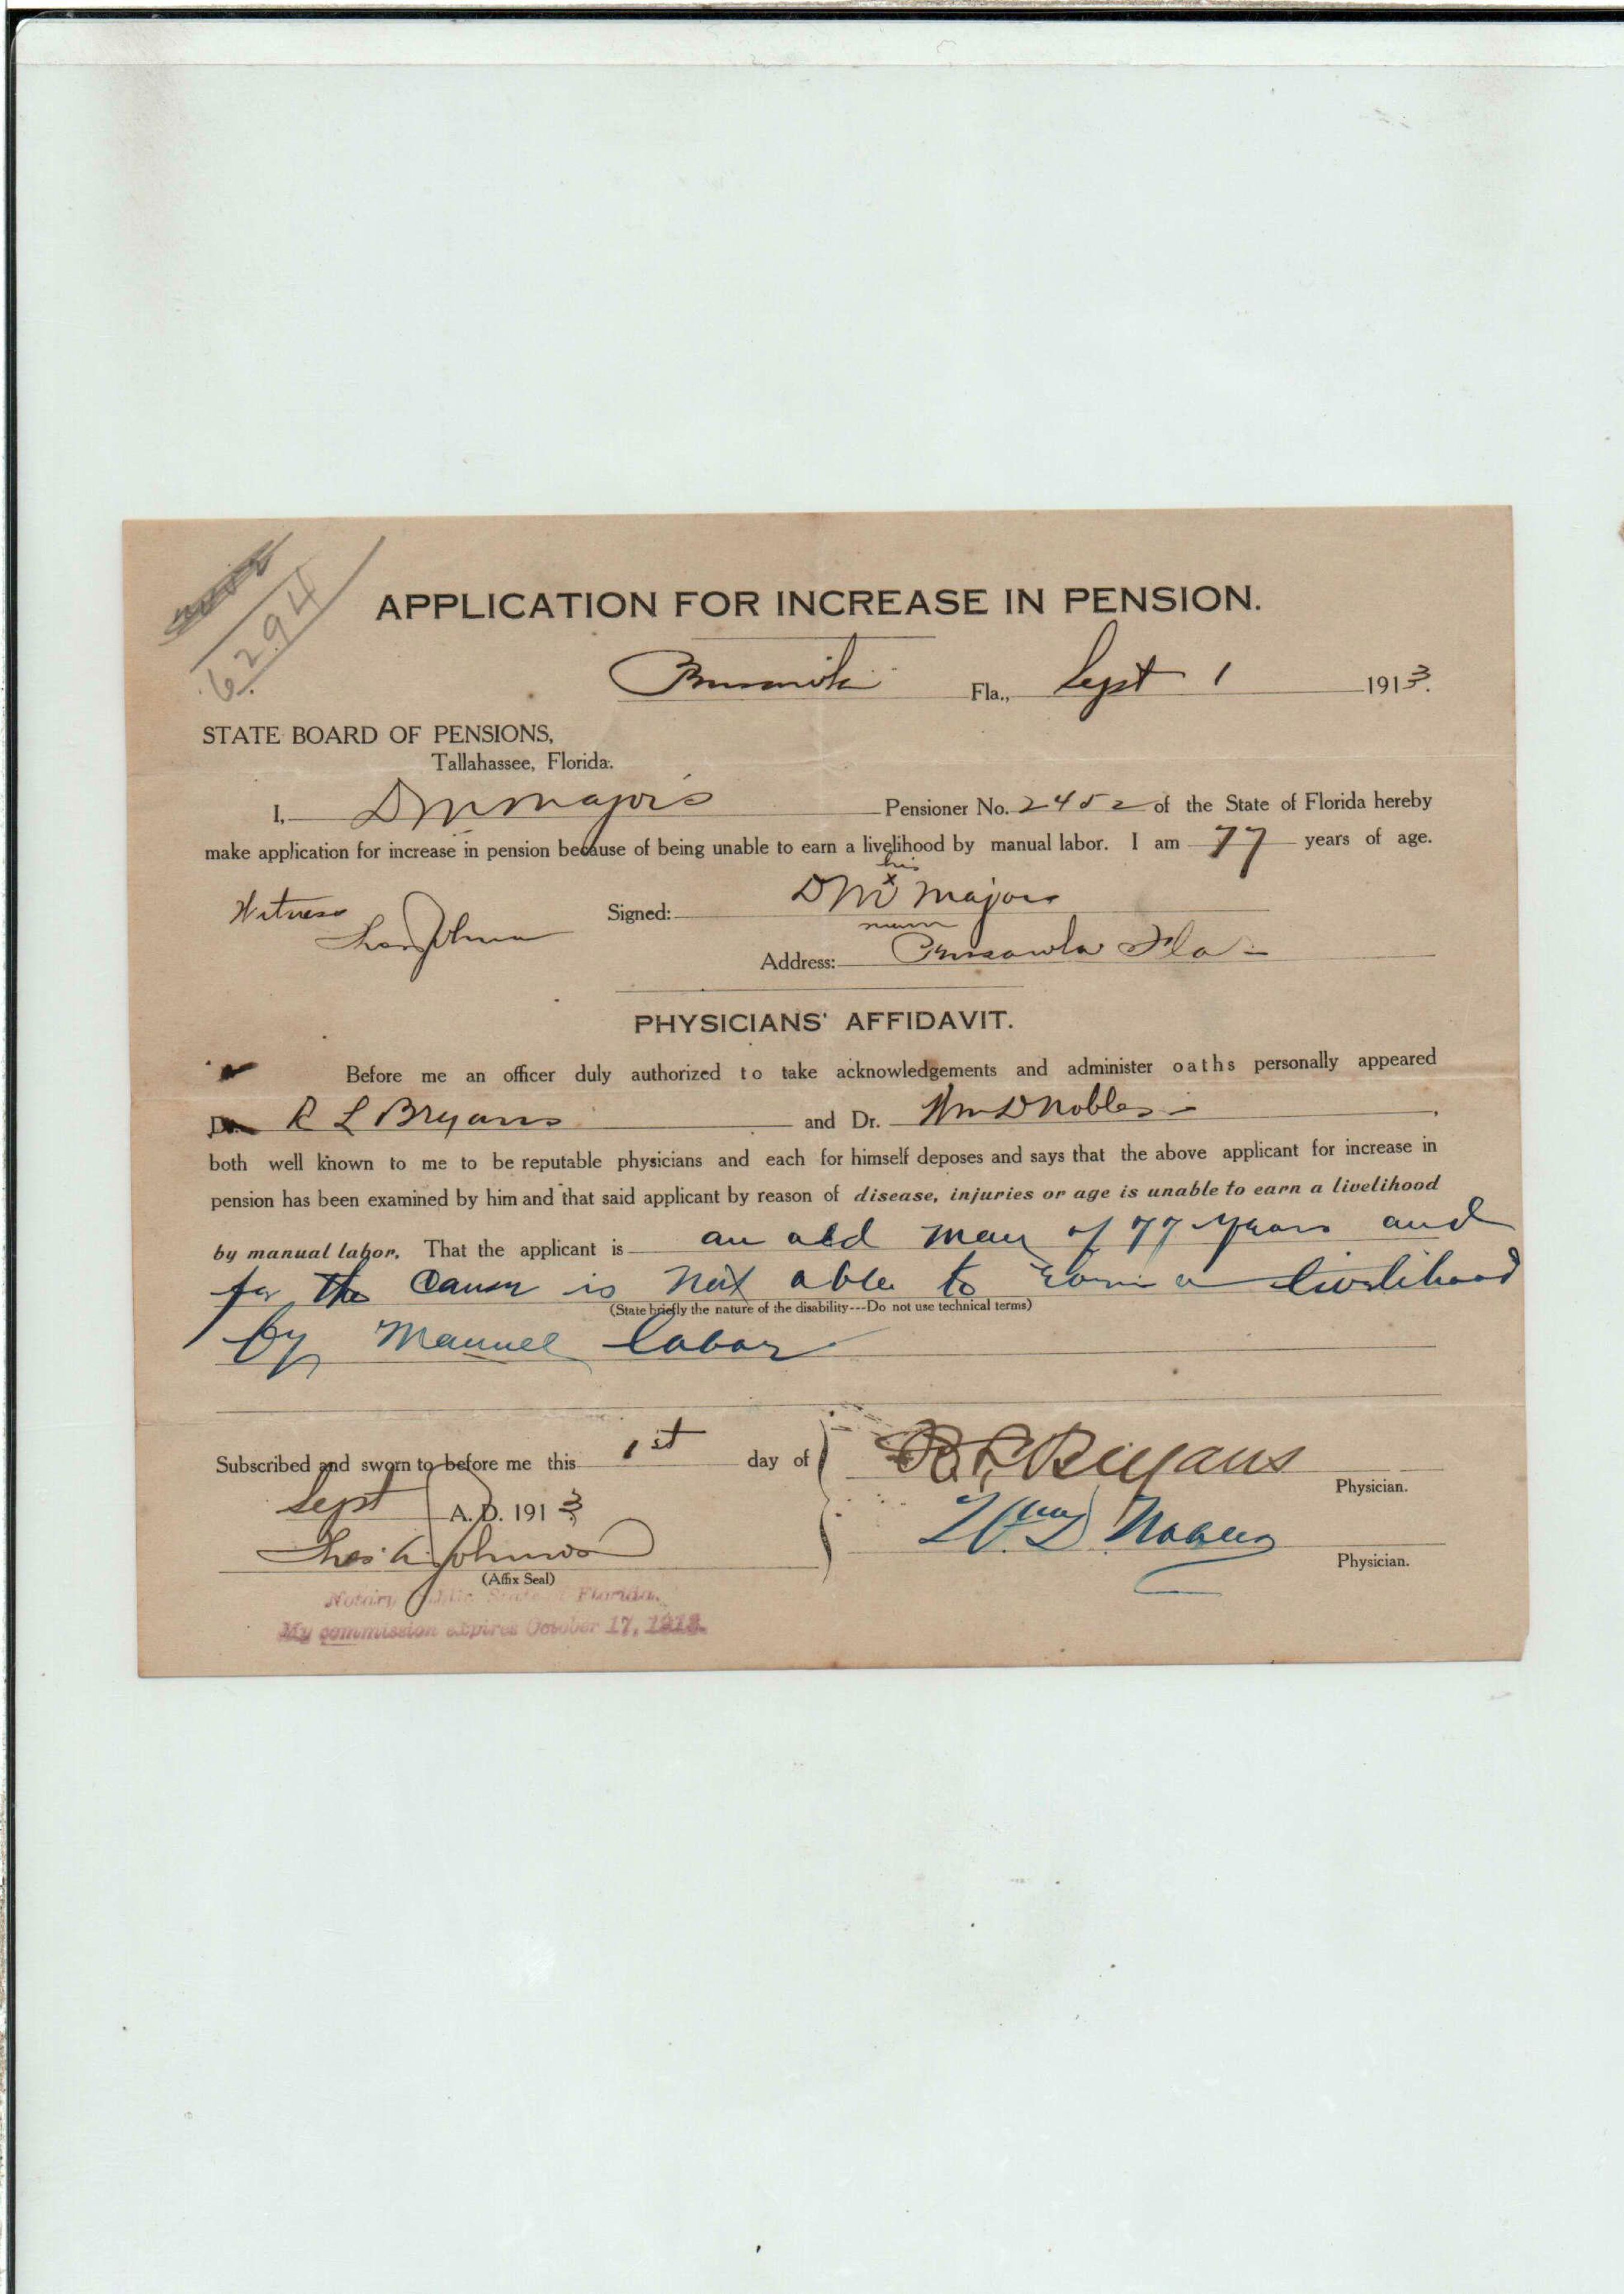 6294
APPLICATION FOR INCREASE IN PENSION.
Fla., Sept 1 1913.
STATE BOARD OF PENSIONS,
Tallahassee, Florida.
I, D M Majors Pensioner No. 2452 of the State of Florida hereby
make application for increase in pension because of being unable to earn a livelihood by manual labor. I am 77 years of age.
his
Witness Signed: D M x Majors
Address: Fla
PHYSICIANS' AFFIDAVIT.
Before me an officer duly authorized to take acknowledgements and administer oaths personally appeared
Dr. R L Bryans and Dr. Wm D Nobles
both well known to me to be reputable physicians and each for himself deposes and says that the above applicant for increase in
pension has been examined by him and that said applicant by reason of disease, injuries or age is unable to earn a livelihood
by manual labor. That the applicant is an old man of 77 years and
for the cause is not able to earn a livelihood
(State briefly the nature of the disability---Do not use technical terms)
by Manuel labor
Subscribed and sworn to before me this 1st day of
R L Bryans
Physician.
Sept A. D. 1913
Wm D Nobles
Physician.
Thos. A. Johnson
(Affix Seal)
Notary Public State of Florida.
My commission expires October 17, 1913.